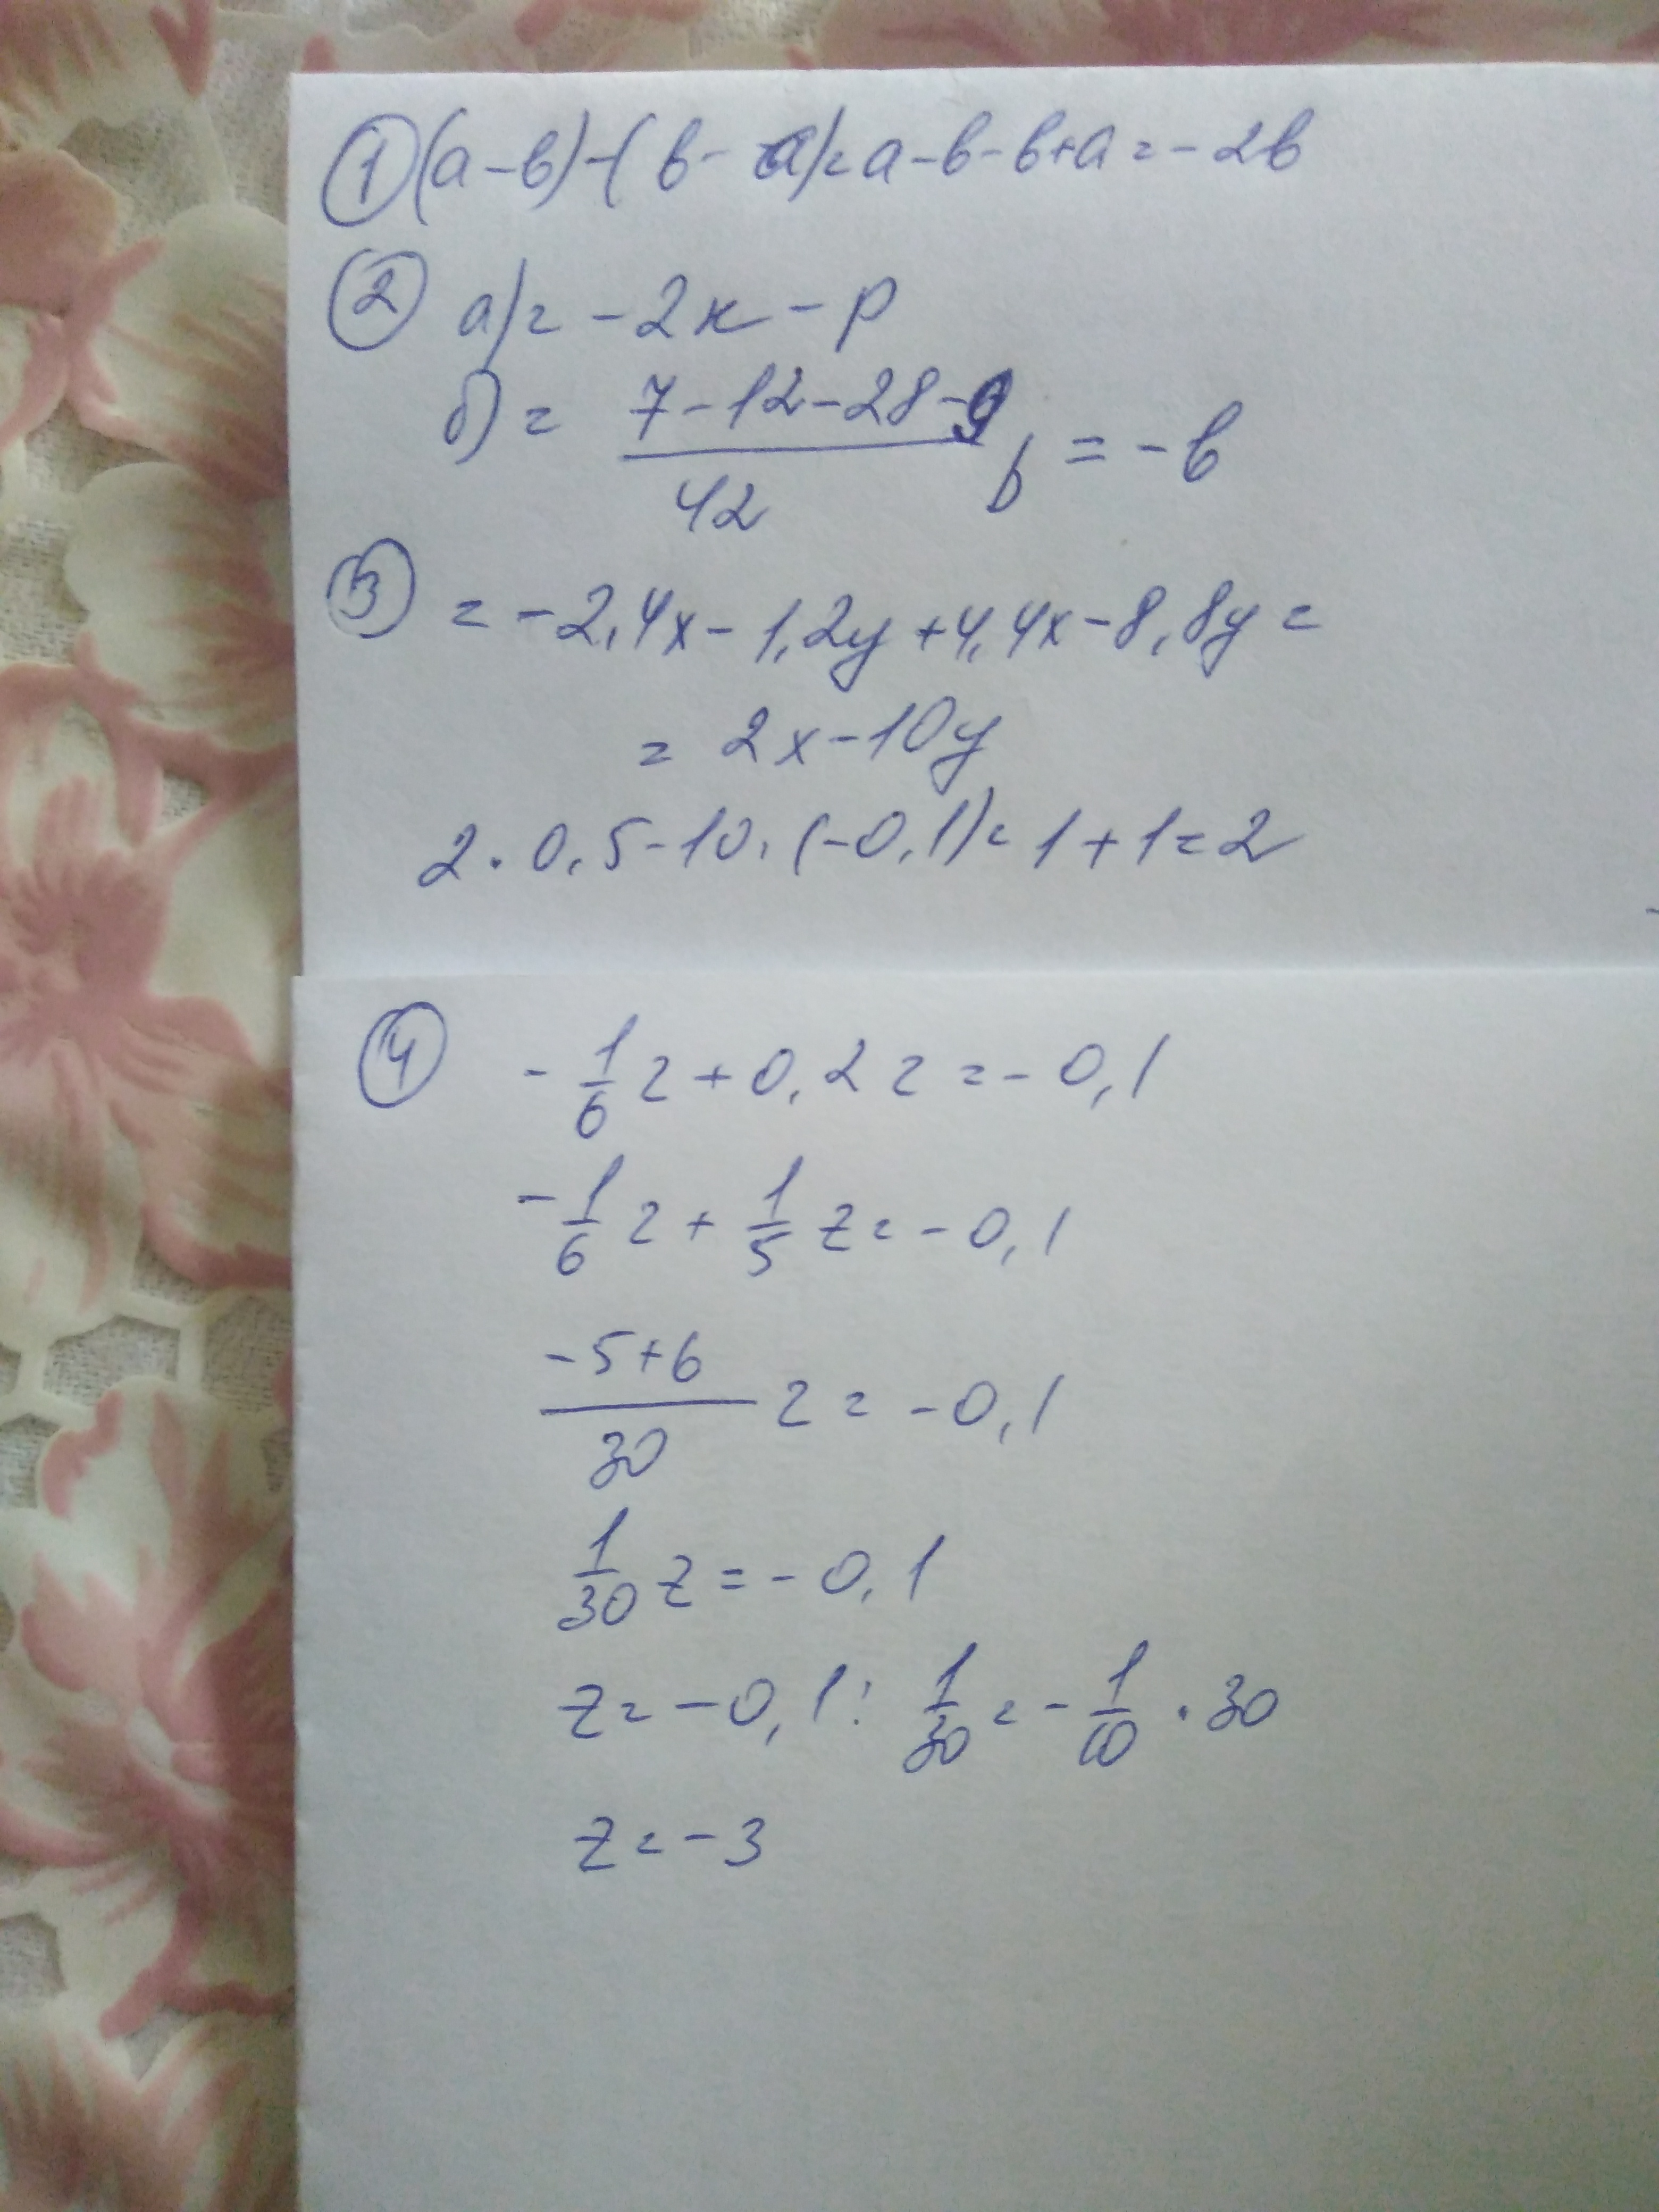 ① (а-в)-(в-а)=а-в-в+а=-2в
② а)= -2к-р
б)= 7-12-28-9/42 b = -в
③ = -2,4x-1,2y+4,4x-8,8y=
= 2x-10y
2·0,5-10·(-0,1)=1+1=2
④ -1/6 z+0,2z=-0,1
-1/6 z+1/5 z=-0,1
-5+6/30 z=-0,1
1/30 z=-0,1
z=-0,1:1/30=-1/10·30
z=-3